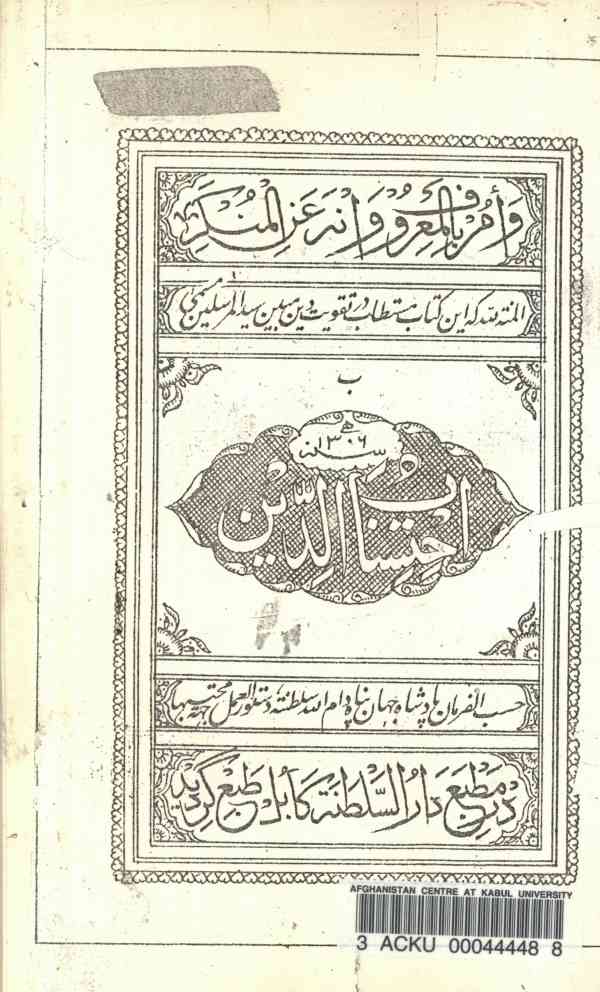 وَأمُر بِالمَعرُوفِ وَانهَ عَنِ المُنكَرِ
المنة لله که این کتاب مستطاب در تقویت دین مبین سید المرسلین مسمی
ب
سنه ۱۳۰۶ هـ
احتساب الدین
حسب الفرمان پادشاه جهان پناه دام الله سلطنته دستور العمل جهة محتسبها
در مطبع دار السلطنة کابل طبع گردید
AFGHANISTAN CENTRE AT KABUL UNIVERSITY
3 ACKU 00044448 8